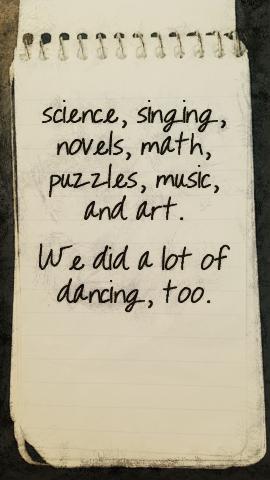 science, singing,
novels, math,
puzzles, music,
and art.
We did a lot of
dancing, too.